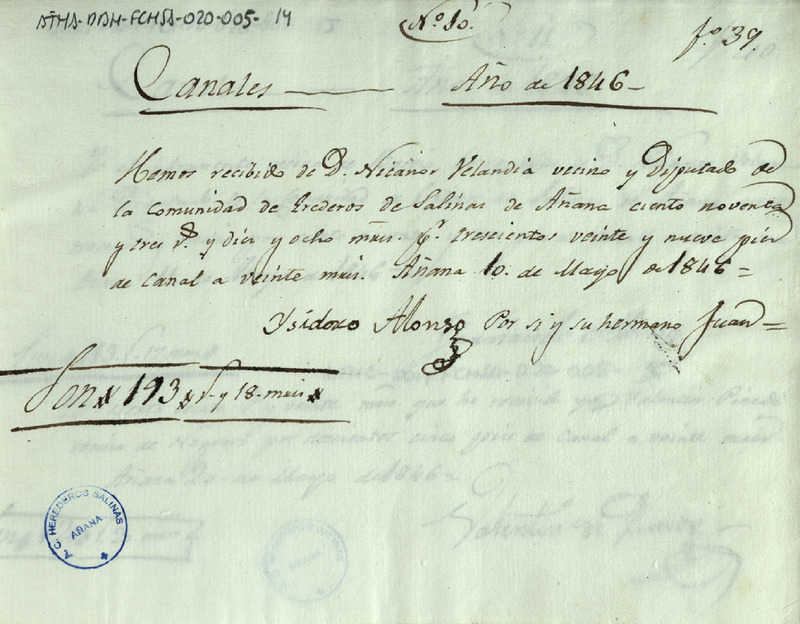 ATHA-DAH-FCHSA-020-005-14
Nº 10.
fº 39.
Canales — Año de 1846-
Hemos recibido de D. Nicanor Velandia vecino y Diputado de
la Comunidad de Erederos de Salinas de Añana ciento noventa
y tres rs. y diez y ocho mrs. pr. trescientos veinte y nueve pies
de Canal a veinte mrs. Añana 10. de Mayo de 1846=
Ysidoro Alonso Por si y su hermano Juan=
Son 193 rs. y 18-mrs
A.C. HEREDEROS SALINAS
AÑANA